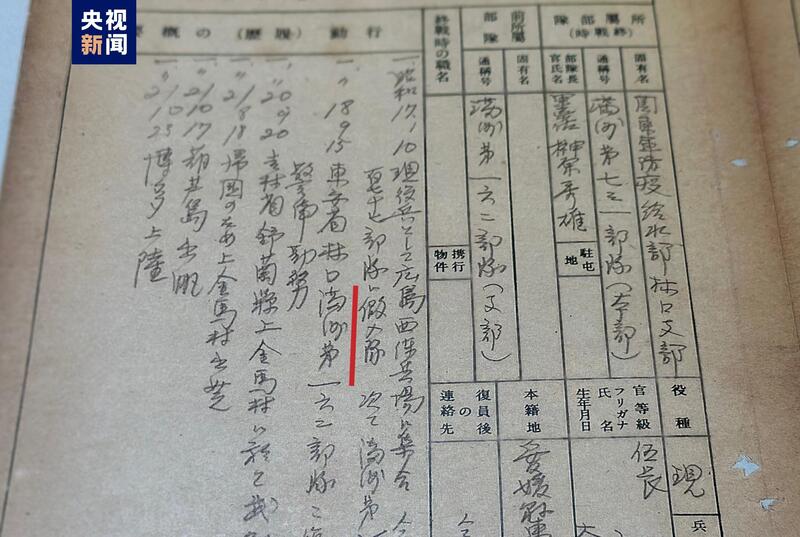 央视
新闻
所屬部隊
(終戰時)
固有名
関東軍防疫給水部林口支部
通稱号
満洲第七三一部隊(本部)
部隊長
官氏名
榊原秀雄
駐屯地
前所屬部隊
固有名
通稱号
満洲第一六二部隊(支部)
終戰時の職名
携行物件
役種
現
兵
官等級
伍長
フリガナ
氏名
生年月日
本籍地
愛媛縣
復員後の連絡先
行動(履歴)の概要
一、昭和17.1.10 現役兵として広島西練兵場に集合
部隊に仮入隊 次で満洲第
〃18 9 15 東安省林口満洲第一六二部隊
警備勤務
一、〃20 9 20 吉林省舒蘭縣上金馬村に於て
一、〃21 8 18 帰国のため上金馬村出発
一、〃21 10 17 葫芦島出帆
一、〃21 10 25 博多上陸